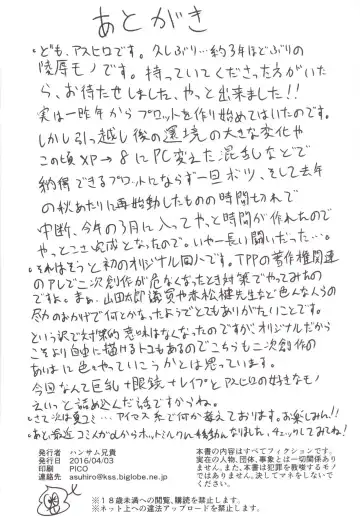 あとがき
・ども、アスヒロです。久しぶり…約3年ほどぶりの
陵辱モノです。持っていてくださった方がいた
ら、お待たせしました、やっと出来ました!!
実は一昨年からプロットを作り始めてはいたのです。
しかし引っ越し後の環境の大きな変化や
この頃XP→8にPC変えた混乱などで
納得できるプロットにならず一旦ボツ、そして去年
の秋あたりに再始動したものの時間切れで
中断、今年の3月に入ってやっと時間が作れたので
やっとこさ完成となったので。いやー長い闘いだった…。
・それはそうと初のオリジナル同人です。TPPの著作権関連
のアレで二次創作が危なくなったとき対策でやってみたの
ですよ。まぁ、山田太郎議員や赤松健先生など色んな人らの
尽力のおかげで何とかなったようでとてもありがたいことです。
という訳で対策的意味はなくなったのですが、オリジナルだから
こそより自由に描けるトコもあるのでこちらも二次創作の
あいまに色々やっていこうかとは思っています。
今回なんて巨乳+眼鏡+レイプとアスヒロの好きなモノ
えいっと詰め込んだ話ですからね。
・さて次は夏コミ…アイマス系で何か考えております。お楽しみん!!
・あと最近コミ
チェックしてみてね!
発行者 ハンサム兄貴
発行日 2016/04/03
印刷 PICO
連絡先 asuhiro@kss.biglobe.ne.jp
本書の内容はすべてフィクションです。
実在の人物、団体、事象とは一切関係あり
ません。また、本書は犯罪を教唆するモノ
ではありません。決してマネをしないでく
ださい。
※18歳未満への閲覧、購読を禁止します。
※ネット上への違法アップロードを禁止します。